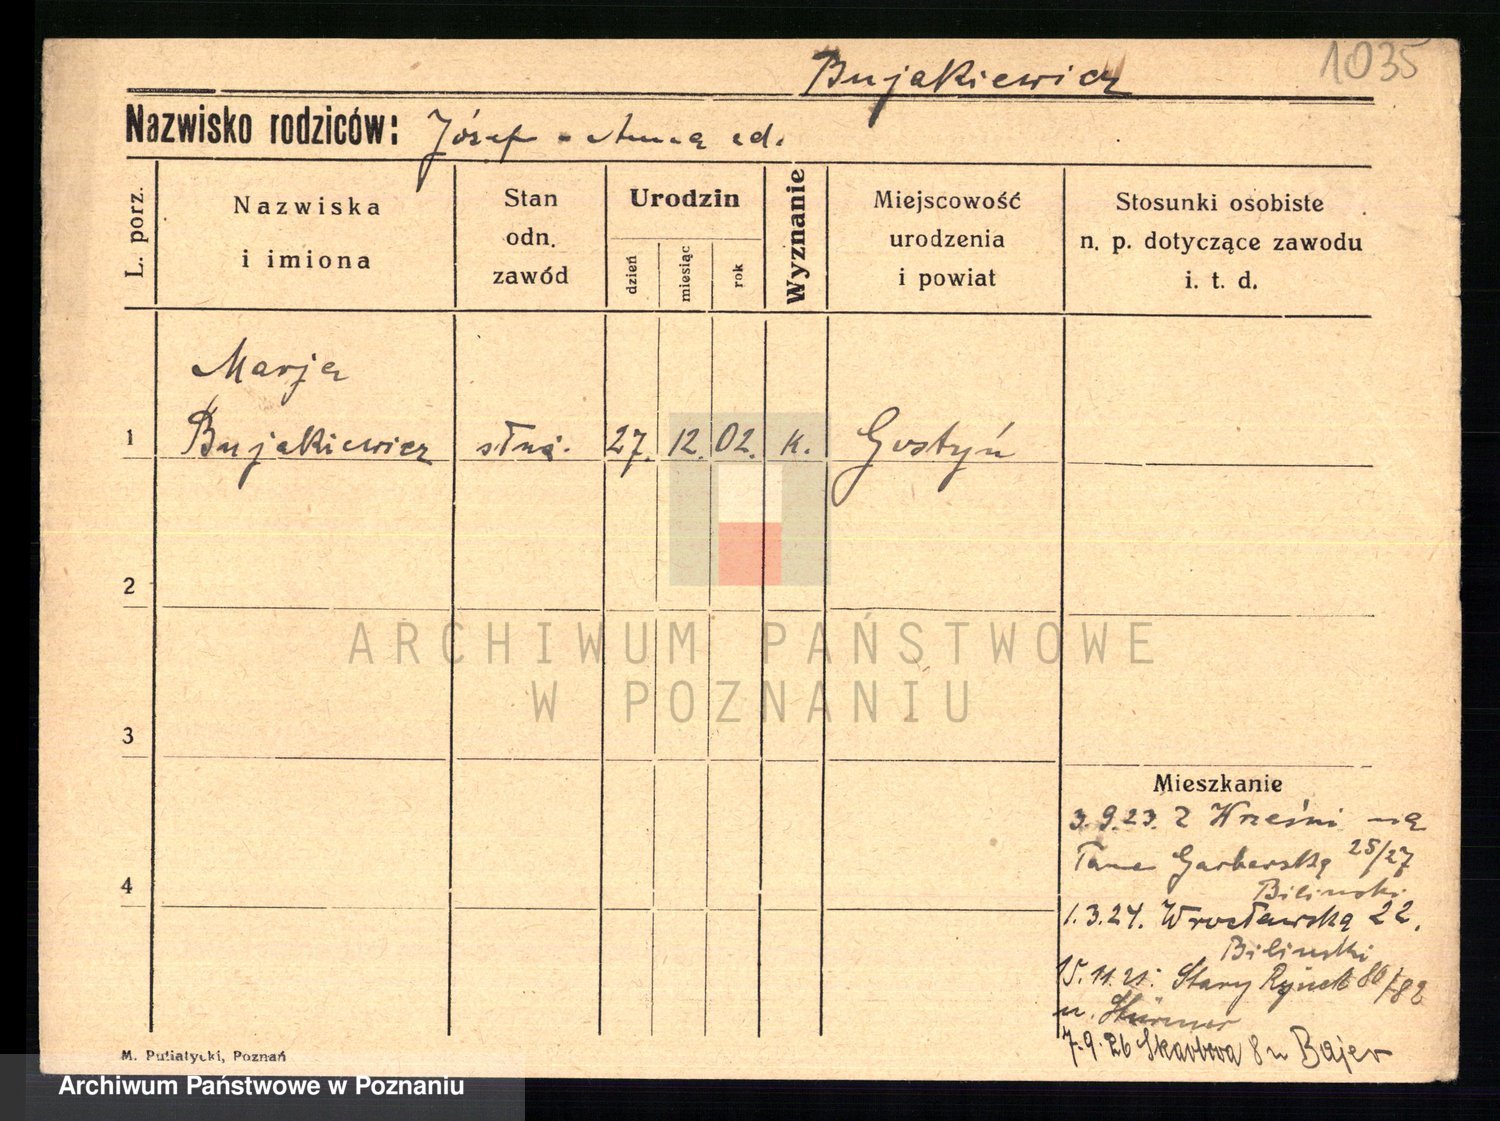 Bujakiewicz
1035
Nazwisko rodziców: Józef - Anna
L. porz.
Nazwiska
i imiona
Stan
odn.
zawód
Urodzin
dzień
miesiąc
rok
Wyznanie
Miejscowość
urodzenia
i powiat
Stosunki osobiste
n. p. dotyczące zawodu
i. t. d.
Marja
1 Bujakiewicz służ. 27. 12. 02. k. Gostyń
2
3
4
ARCHIWUM PAŃSTWOWE
W POZNANIU
Mieszkanie
3.9.23. z Wrześni na
Tamę Garbarską 25/27
Bilinski
1.3.24. Wrocławską 22.
Bilinski
15.11. Stary Rynek 80/82
u. Stürmer
7.9.26 Skarbowa 8 u Bajer
M. Putiatycki, Poznań
Archiwum Państwowe w Poznaniu